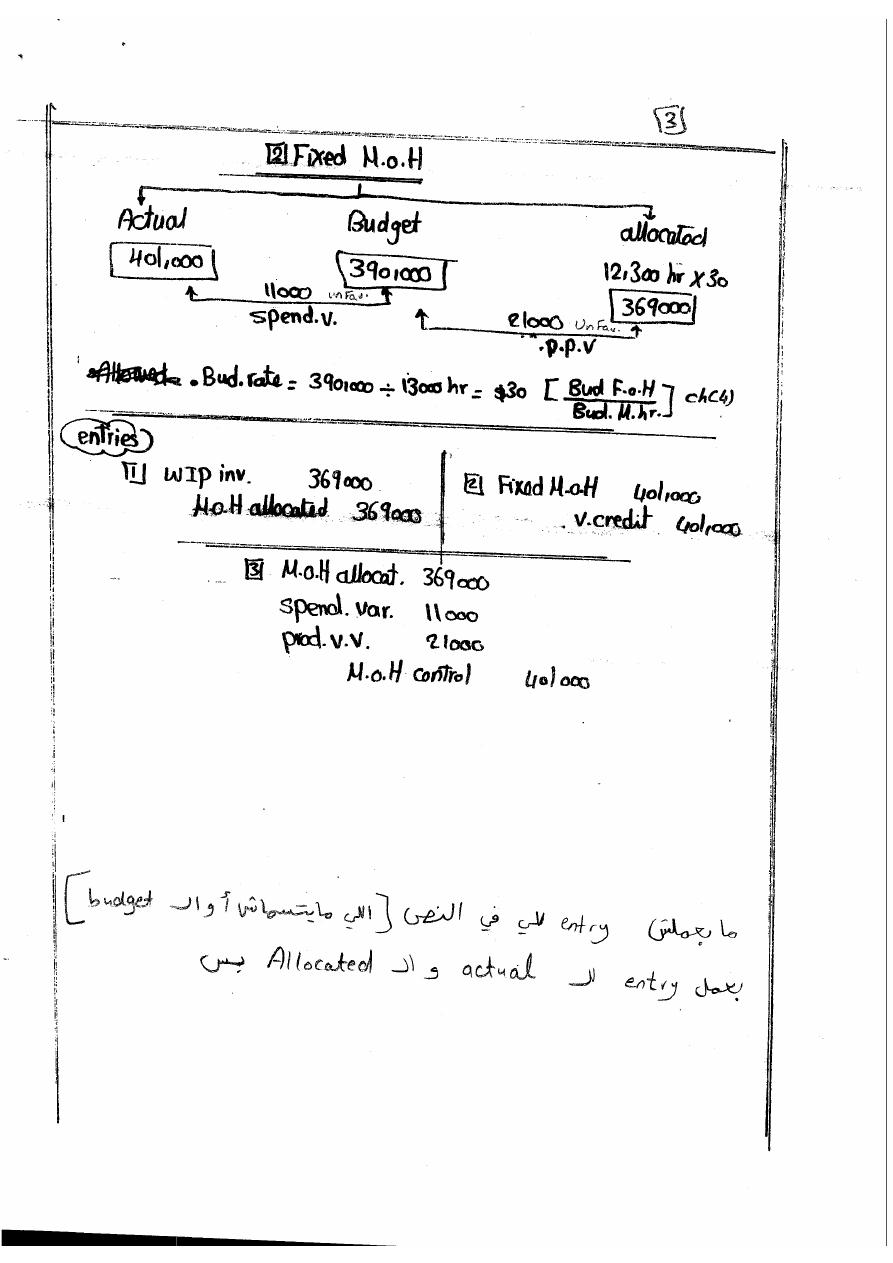 3
2 Fixed M.o.H
Actual Budget allocated
401,000 390,000 12,300 hr x 30
369000
11000 unFav. 21000 UnFav.
spend.v. .p.p.V
.Bud.rate = 390,000 ÷ 13000 hr = $30 [Bud F.o.H / Bud. M.hr.] ch(4)
entries
1 WIP inv. 369000
M.o.H allocated 369000
2 Fixed M.o.H 401,000
.V.credit 401,000
3 M.o.H allocat. 369000
spend. var. 11000
prod.v.v. 21000
M.o.H control 401000
ما بعملش entry للي في النص [اللي مايتسماش أو الـ budget]
بعمل entry الـ actual و الـ Allocated بس